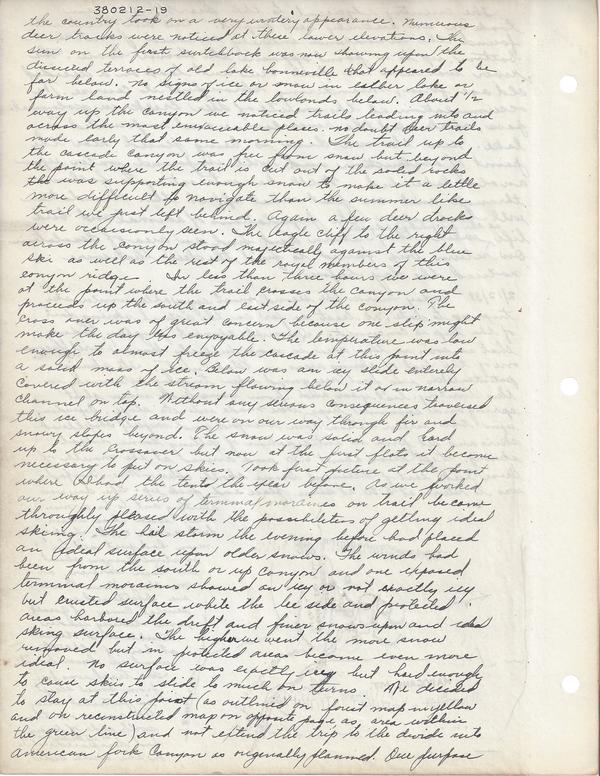 380212-19
the country took on a very wintery appearance. Numerous
deer tracks were noticed at these lower elevations. The
sun on the first switchback was now showing upon the
disected terraces of old lake bonneville that appeared to be
far below. No signs of ice or snow in eather lake or
farm land nestled in the lowlands below. About 1/2
way up the canyon we noticed trails leading into and
across the most places. no doubt deer trails
made early that same morning. The trail up to
the cascade canyon was free from snow but beyond
the point where the trail is cut out of the soled rocks
the was supporting enough snow to make it a little
more difficult to navigate than the summer like
trail we just left behind. Again a few deer
were occasionly seen. The eagle cliff to the right
across the canyon stood majestically against the blue
ski as well as the rest of the royal members of this
conyon ridge. In less than three hours we were
at the point where the trail crosses the canyon and
proceeds up the south and east side of the canyon. The
cross over was of great concern because one slip might
make the day less enjoyable. The temperature was low
enough to almost freeze the cascade at this point into
a solid mass of ice. Below was an icy slide entirely
covered with the stream flowing below it or in narrow
channel on top. Without any serious consequences traversed
this ice bridge and were on our way through fir and
snowy slopes beyond. The snow was solid and hard
up to the crossover but now at the first flats it become
necessary to put on skiis. Took first picture at the point
where I had the tents the year before. As we worked
our way up series of terminal moraines on trail became
throughly pleased with the possibilities of getting ideal
skiing. The hail storm the evening before had placed
an ideal surface upon older snows. The winds had
been from the south or up canyon and one exposed
terminal moraine showed an icy or not exactly icy
but crusted surface while the lee side and protected
areas harbored the drift and finer snows upon and ideal
skiing surface. The higher we went the more snow
removed but in protected areas became even more
ideal. No surface was exactly icey but hard enough
to cause skis to slide to much on turns. We decided
to stay at this point (as outlined on forest map in yellow
and on reconstructed map on opposite page as, area within
the green line) and not extend the trip to the divide into
American fork Canyon as originally planned. Our purpose